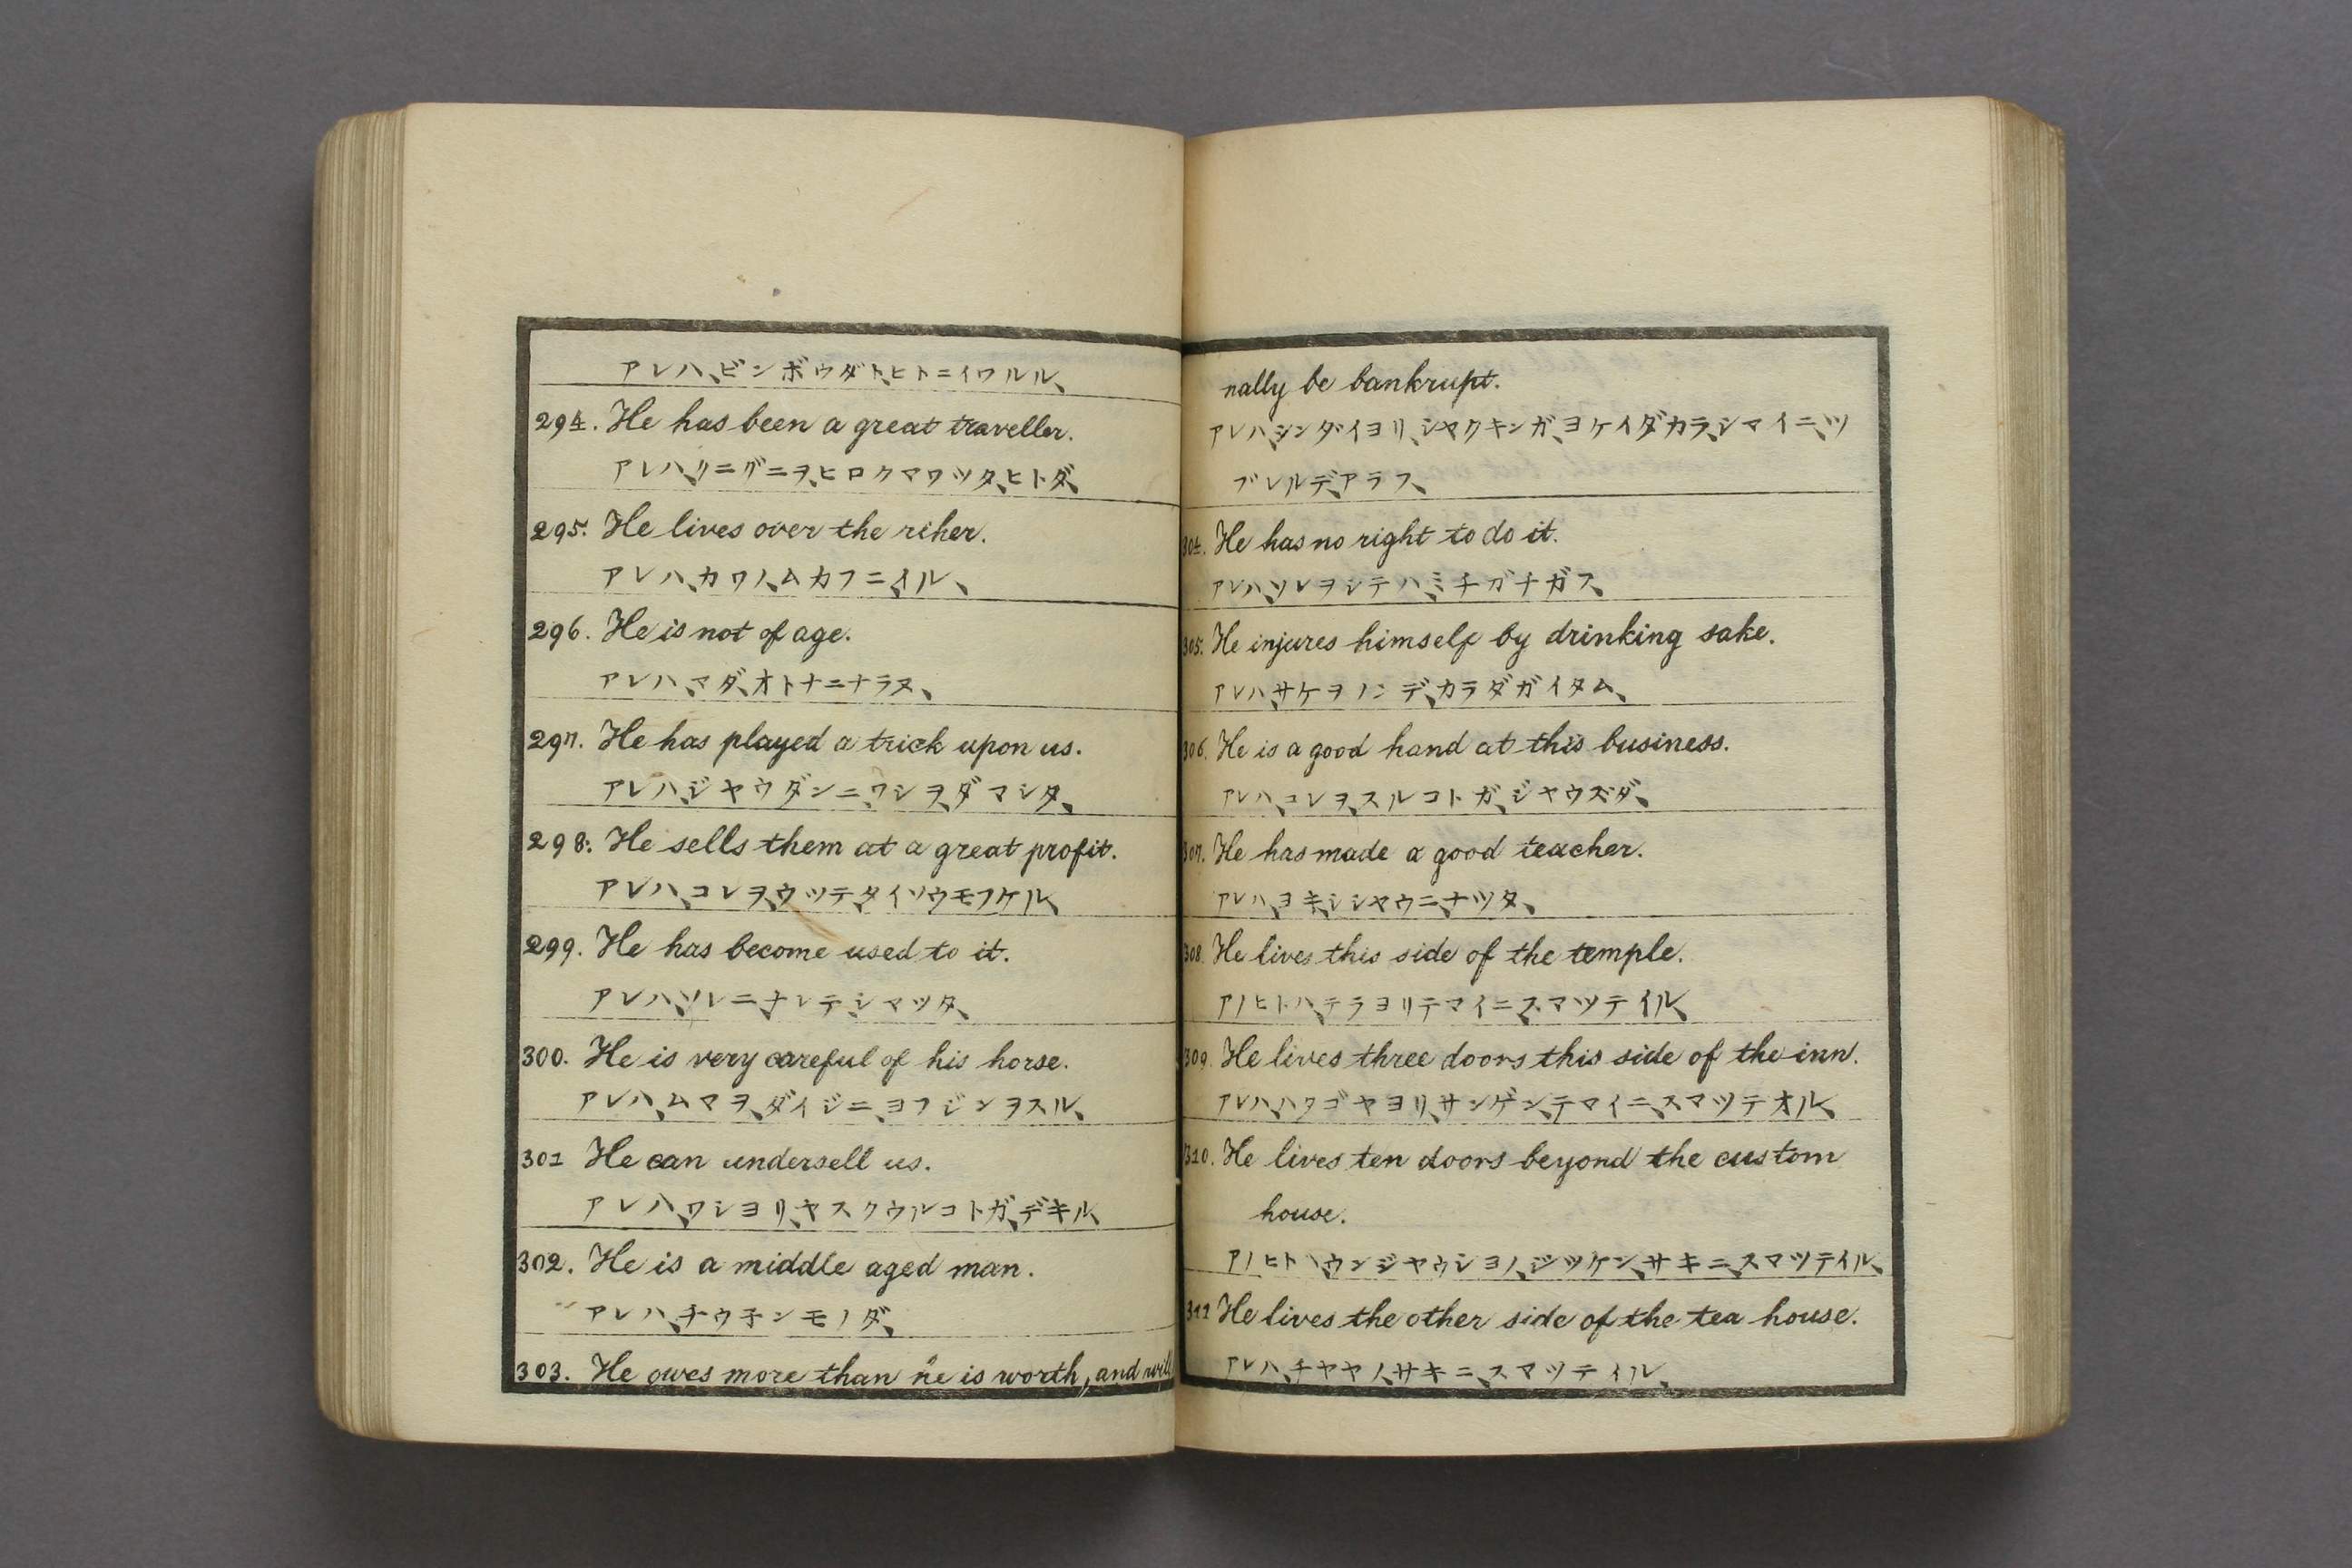 アレハ、ビンボウダト、ヒトニイワルル、
294. He has been a great traveller.
アレハ、クニグニヲ、ヒロクマワツタ、ヒトダ、
295. He lives over the riher.
アレハ、カワノ、ムカフニ、イル、
296. He is not of age.
アレハ、マダ、オトナニナラヌ、
297. He has played a trick upon us.
アレハ、ジヤウダンニ、ワシヲ、ダマシタ、
298. He sells them at a great profit.
アレハ、コレヲ、ウツテ、タイソウモフケル、
299. He has become used to it.
アレハ、ソレニ、ナレテ、シマツタ、
300. He is very careful of his horse.
アレハ、ムマヲ、ダイジニ、ヨフジンヲスル、
301 He can undersell us.
アレハ、ワシヨリ、ヤスクウルコトガ、デキル、
302. He is a middle aged man.
アレハ、チウ子ンモノダ、
303. He owes more than he is worth, and will
nally be bankrupt.
アレハ、シンダイヨリ、シヤクキンガ、ヨケイダカラ、シマイニ、ツ
ブレルデ、アラフ、
304. He has no right to do it.
アレハ、ソレヲシテハ、ミチガナガス、
305. He injures himself by drinking sake.
アレハ、サケヲノンデ、カラダガイタム、
306. He is a good hand at this business.
アレハ、コレヲ、スルコトガ、ジヤウズダ、
307. He has made a good teacher.
アレハ、ヨキ、シシヤウニ、ナツタ、
308. He lives this side of the temple.
アノヒトハ、テラヨリテマイニ、スマツテイル、
309. He lives three doors this side of the inn.
アレハ、ハタゴヤヨリ、サンゲン、テマイニ、スマツテオル、
310. He lives ten doors beyond the custom
house.
アノヒトハ、ウンジヤウシヨノ、ジツケン、サキニ、スマツテイル、
311 He lives the other side of the tea house.
アレハ、チヤヤノ、サキニ、スマツテイル、